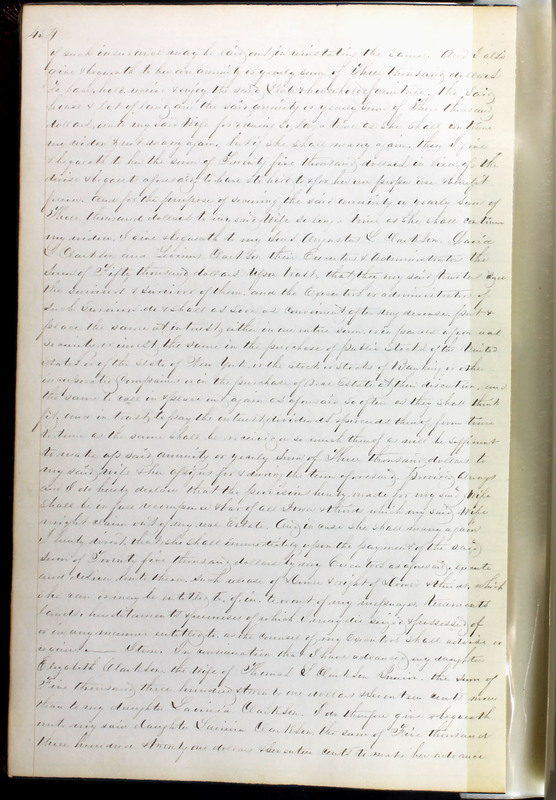 of such insurance may be laid out in reinstating the same. And I also
give & bequeath to her an annuity or yearly sum of Three thousand dollars
To have, hold, receive & enjoy the said, & household furniture, the said
house & lot of land and the said annuity or yearly sum of Three thousand
dollars, unto my said Wife for & during so long a time as she shall continue
my widow & not marry again. but if she shall marry again, then I give
& bequeath to her the sum of Twenty five thousand dollars in lieu of the
devise & bequests aforesaid, to have & to hold to & for her own proper use & benefit
forever. And for the purpose of securing the said annuity or yearly sum of
Three thousand dollars to my said Wife so long a time as she shall continue
my widow, I give & bequeath to my Sons Augustus L Clarkson, David
L Clarkson and Clarkson their Executors & Administrators the
Sum of Fifty thousand dollars Upon trust, that they my said Trustees &
the survivors & survivor of them, and the Executors or administrators of
such Survivor do & shall as soon as convenient after my decease, put &
place the same at interest, either in one entire sum, or in parcels upon real
securities or invest the same in the purchase of public Stocks of the United
States or of the State of New York, or the stock or stocks of Banking or other
incorporated Companies or in the purchase of Real Estate at their discretion, and
the same to call in & place out again as aforesaid so often as they shall think
fit, and in trust, to pay the interest, dividends & proceeds thereof from time
to time as the same shall be received, or so much thereof as will be sufficient
to make up said annuity or yearly Sum of Three thousand dollars to
my said Wife & her assigns for & during the term aforesaid. Provided always
and I do hereby declare that the provision hereby made for my said Wife
shall be in full recompense & bar of all Dower & thirds which my said Wife
might claim out of my real Estate. And in case she shall marry again
I hereby direct, that she shall immediately upon the payment of the said
sum of Twenty five thousand dollars by my Executors as aforesaid, execute
and deliver unto them such release of Dower & right of Dower & thirds, which
she can or may be entitled to, of, in, to or out of my messuages, tenements
lands, hereditaments & premises of which I may die seized & possessed of
or in any manner entitled to as the counsel of my Executors shall advise or
require. Item. In consideration that I have advanced my daughter
Elizabeth Clarkson, the wife of Thomas S Clarkson Junior the sum of
Five thousand three hundred & twenty one dollars & seventeen cents more
than to my daughter Lavinia Clarkson. I do therefore give & bequeath
unto my said daughter Lavinia Clarkson, the sum of Five thousand
three hundred & twenty one dollars & seventeen cents to make her advance